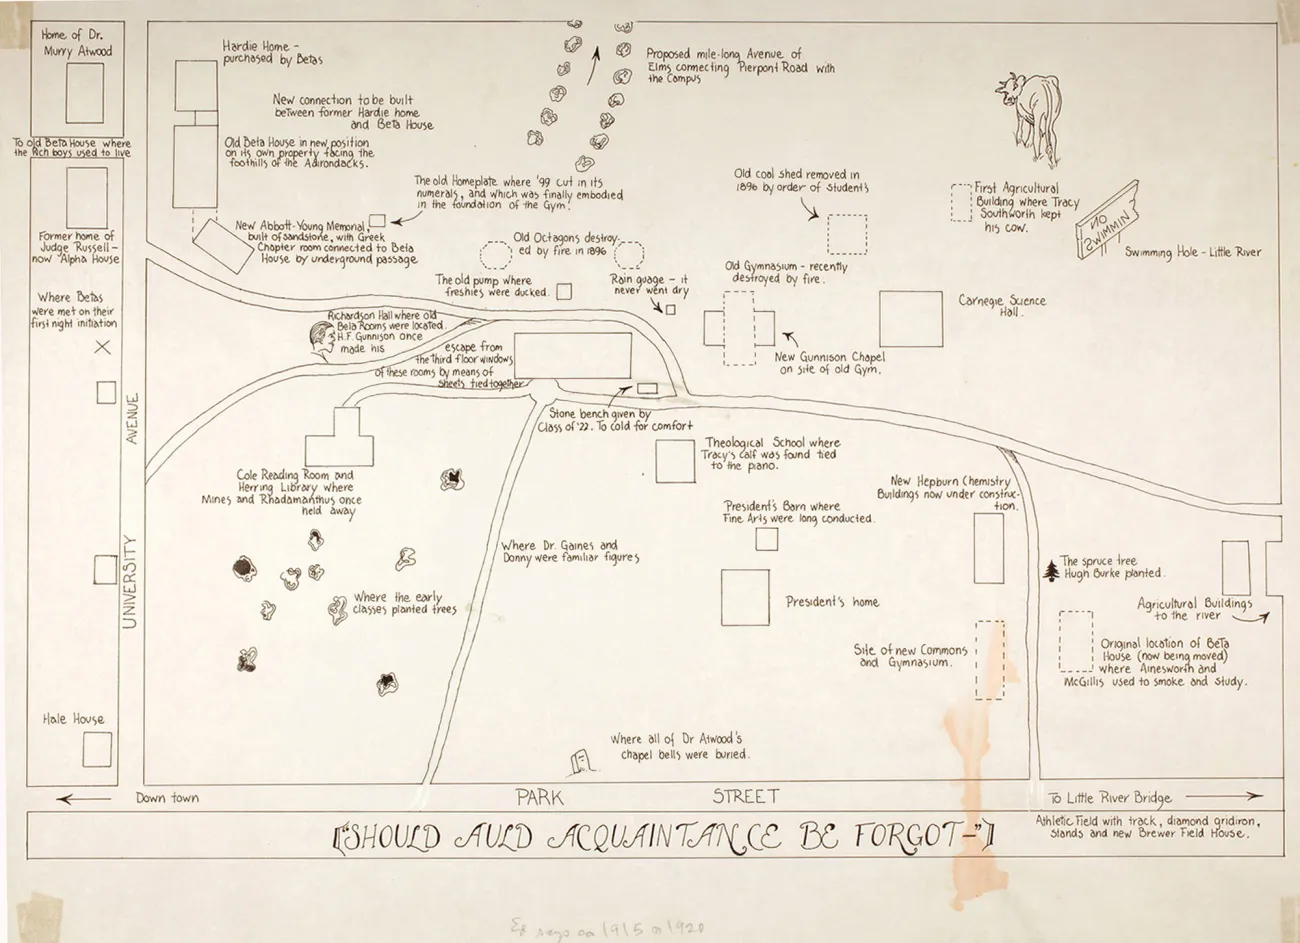 Home of Dr.
Murry Atwood
To old Beta House where
the Rich boys used to live
Former home of
Judge Russell -
now Alpha House
Where Betas
were met on their
first night initiation
Hale House
UNIVERSITY AVENUE
Hardie Home -
purchased by Betas
New connection to be built
between former Hardie home
and Beta House
Old Beta House in new position
on its own property facing the
foothills of the Adirondacks.
New Abbott-Young Memorial,
built of sandstone, with Greek
Chapter room connected to Beta
House by underground passage
The old Homeplate where '99 cut in its
numerals, and which was finally embodied
in the foundation of the Gym!
Proposed mile-long Avenue of
Elms connecting Pierpont Road with
the Campus
Old Octagons destroy-
ed by fire in 1896
The old pump where
freshies were ducked.
Rain guage - it
never went dry
Old coal shed removed in
1896 by order of students
First Agricultural
Building where Tracy
Southworth kept
his cow.
NO
SWIMMIN'
Swimming Hole - Little River
Old Gymnasium - recently
destroyed by fire.
Carnegie Science
Hall.
New Gunnison Chapel
on site of old Gym.
Richardson Hall where old
Beta Rooms were located.
H.F. Gunnison once
made his
escape from
the third floor windows
of these rooms by means of
sheets tied together
Stone bench given by
Class of '22. To cold for comfort
Cole Reading Room and
Herring Library where
Mines and Rhadamanthus once
held away
Theological School where
Tracy's calf was found tied
to the piano.
New Hepburn Chemistry
Buildings now under construc-
tion.
President's Barn where
Fine Arts were long conducted.
Where Dr. Gaines and
Donny were familiar figures
The spruce tree
Hugh Burke planted.
Where the early
classes planted trees
President's home
Agricultural Buildings
to the river
Site of new Commons
and Gymnasium.
Original location of Beta
House (now being moved)
where Ainesworth and
McGillis used to smoke and study.
Where all of Dr Atwood's
chapel bells were buried.
Down town
PARK STREET
To Little River Bridge
["SHOULD AULD ACQUAINTANCE BE FORGOT-"]
Athletic Field with track, diamond gridiron,
stands and new Brewer Field House.
says 1915 1920